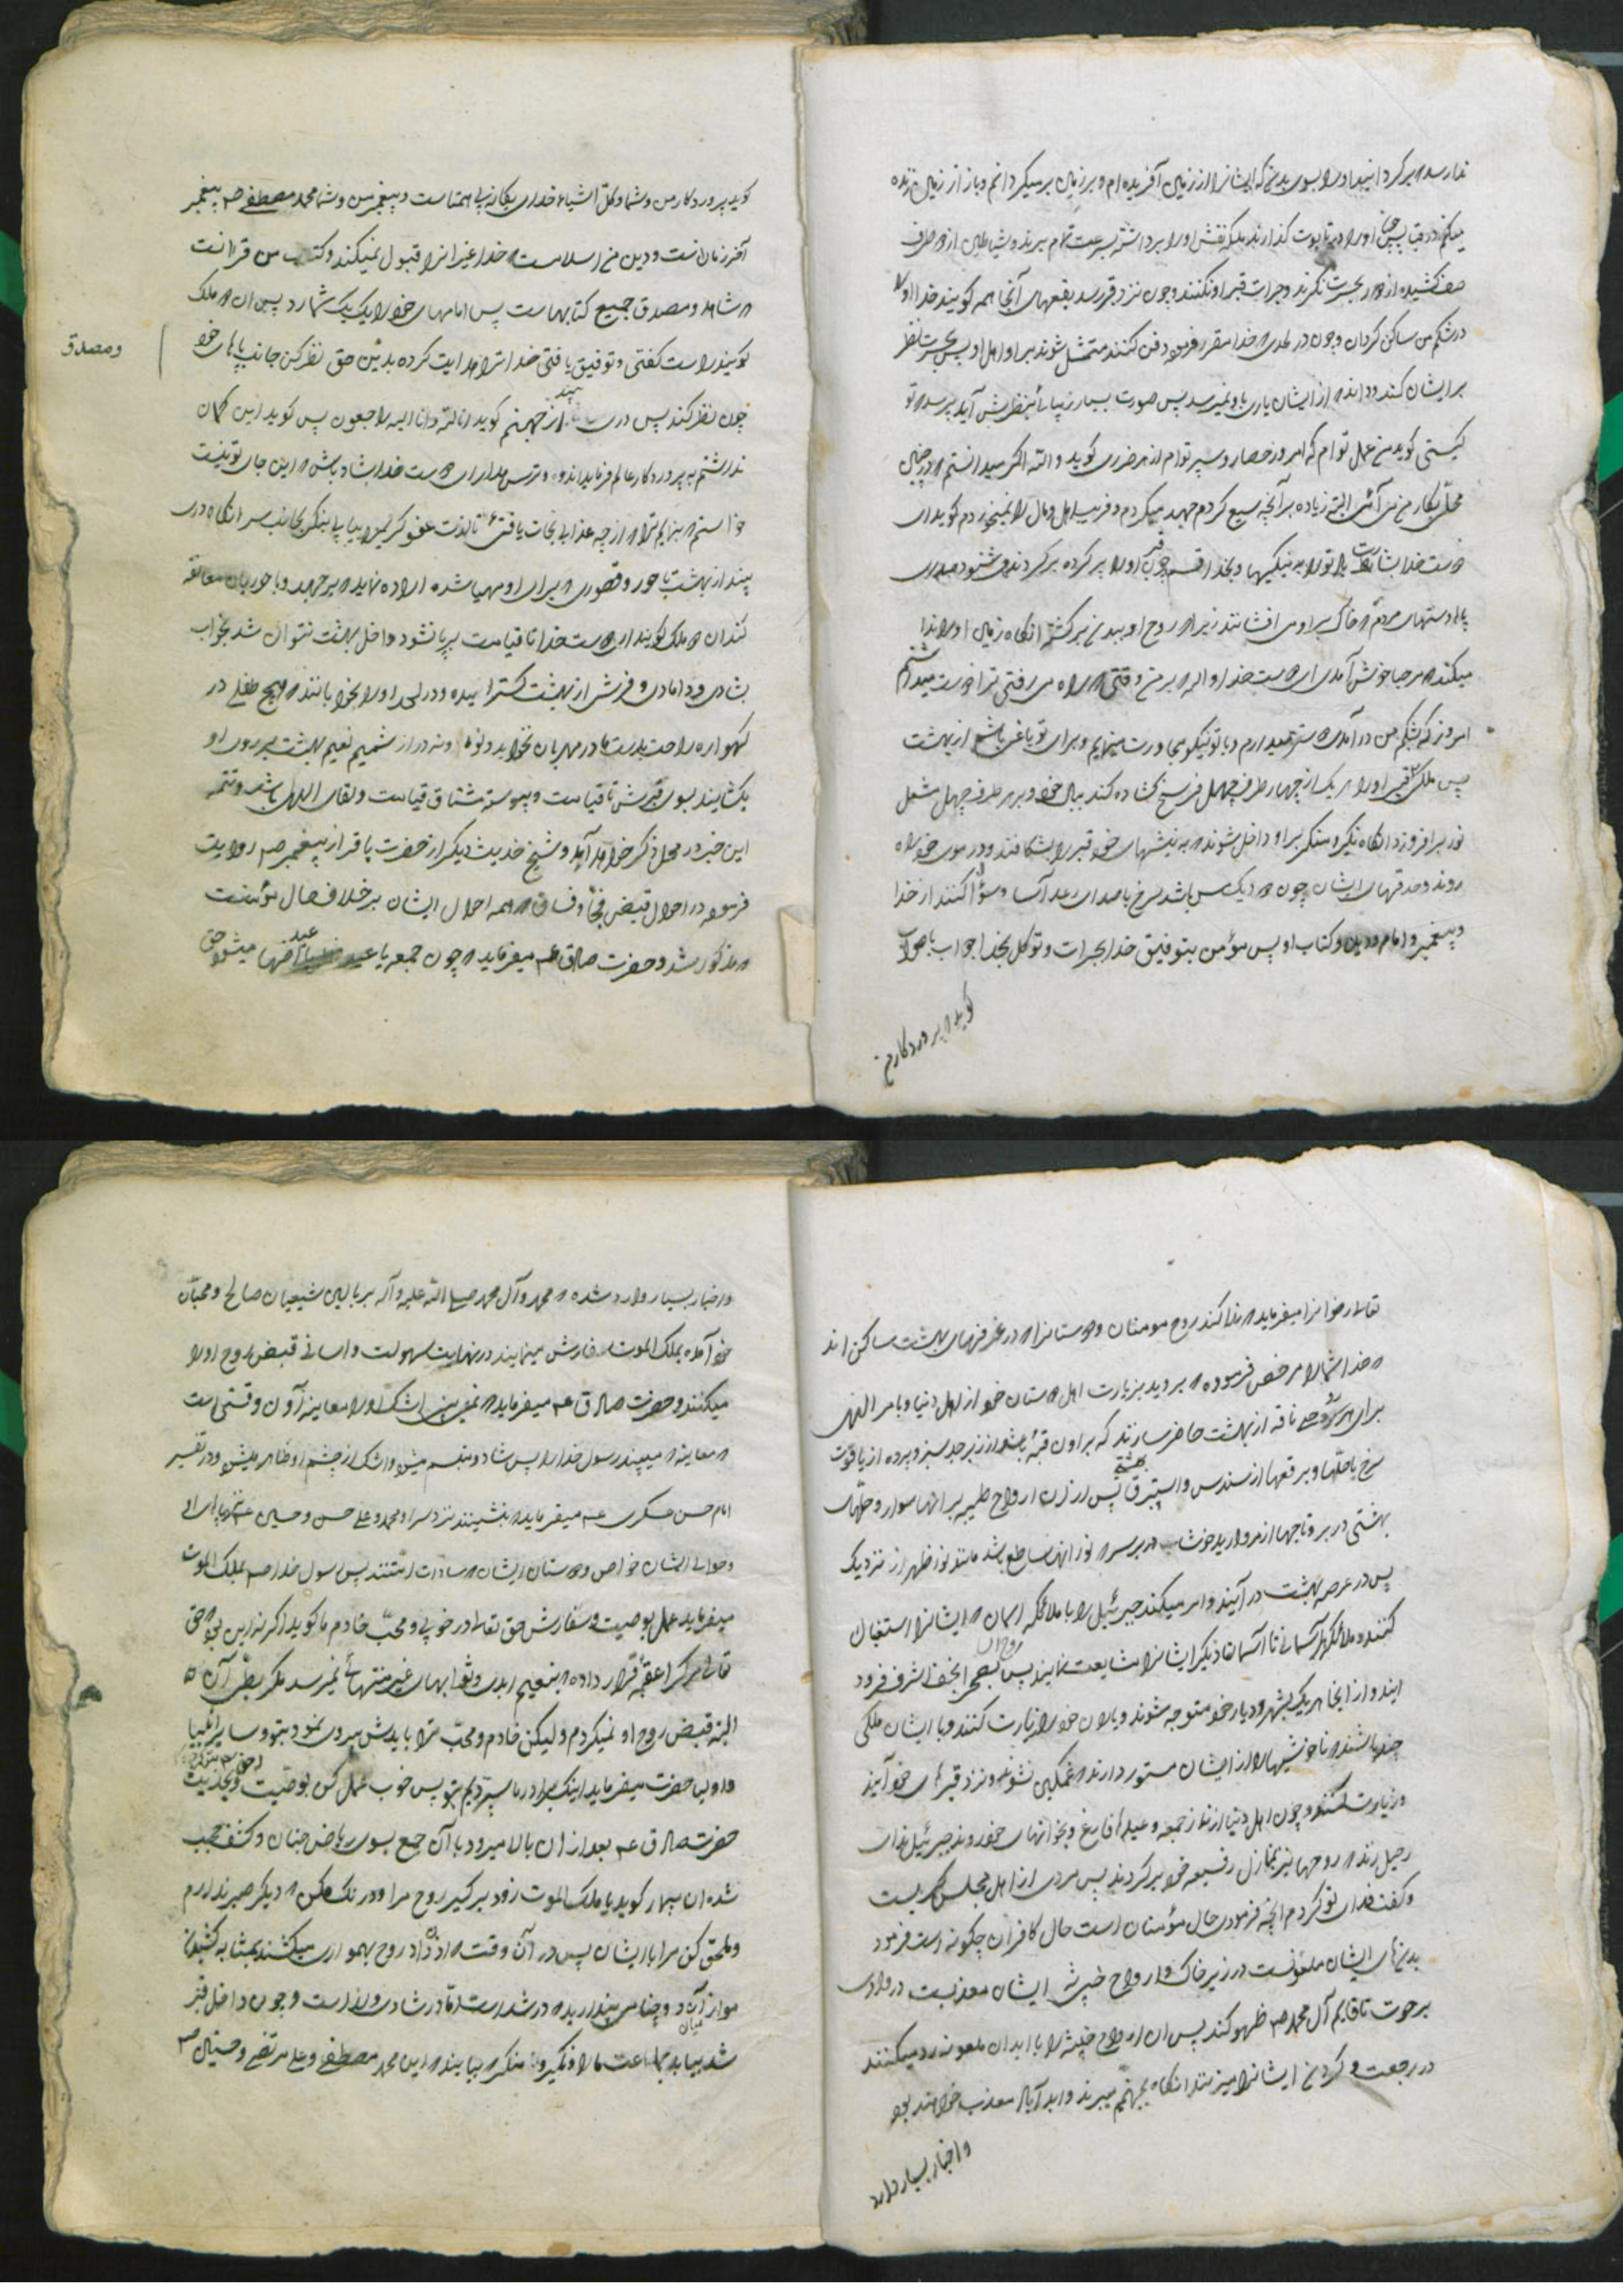 ندا رسد که برگردانید او را بسوی بدن که ایشانرا از زمین آفریده ام و بر زمین برمیگردانم و باز از زمین زنده
میکنم در قیامت چون او را در تابوت گذارند ملک نعش او را برداشته بسرعت تمام برند و شیاطین از دو طرف
صف کشیده از دور بحسرت نگرند و جرات قبر او نکنند و چون نزد قبر رسد بقعهای آنجا همه گویند خدا او را
در شکم من ساکن گردان و چون در لحدی که خدا مقرر فرموده دفن کنند متمثل شوند برای او اهل او پس بحسرت نظر
بر ایشان کند و داند که از ایشان یاری باو نمیرسد پس صورت بسیار زیبائی بنظرش آید پرسد که تو
کیستی گوید من عمل توام که امروز حصار و سپر توام از هر ضرری گوید والله اگر میدانستم که در چنین
محل بکار من می آئی البته زیاده بر آنچه سعی کردم جهد میکردم و فریب اهل و مال را نمیخوردم گوید ای
دوست خدا بشارت باد تو را به نیکیها و بخدا قسم چون قبر او را پر کرده برگردند می شنود صدای
پا و دستهای مردم که خاک بر او می افشانند زیرا که روح او ببدن برگشته انگاه زمین او را ندا
میکند که مرحبا خوش آمدی ای دوست خدا والله که بر من وقتی که راه می رفتی ترا دوست میداشتم
امروز که بشکم من در آمدی دوستر میدارم و با تو نیکو مجاورت مینمایم و برای تو باغی باشم از بهشت
پس ملکی قبر او را هر یک از چهار طرف چهل فرسخ گشاده کند ببال خود و بر هر طرف چهل مشعل
نور برافروزد انگاه نکیر و منکر بر او داخل شوند که به نیشهای خود قبر را بشکافند و در موی خود راه
روند و حدقهای ایشان چون دیگ مس باشد سرخ با صدای رعد آسا و سؤال کنند از خدا
و پیغمبر و امام و دین و کتاب او پس مؤمن بتوفیق خدا بجرات و توکل بخدا جواب باصواب
گوید که پروردگار من
گوید پروردگار من و شما و کل اشیاء خدای یگانه بی همتاست و پیغمبر من و شما محمد مصطفی ص پیغمبر
آخر زمان است و دین من اسلامست که خدا غیر انرا قبول نمیکند و کتاب من قرانست
که شاهد و مصدق جمیع کتابهاست پس امامهای خود را یک یک شمارد پس ان دو ملک
و مصدق
گویند راست گفتی و توفیق یافتی خدا ترا هدایت کرده بدین حق نظر کن جانب پاهای خود
چون نظر کند پس دری بیند از جهنم گوید انا لله و انا الیه راجعون پس گوید این گمان
نداشتم به پروردگار عالم فرماید اندوه و ترس مدار ای دوست خدا شاد باش که این جای تو نیست
خواستم که بنمایم ترا که از چه عذابی نجات یافتی تا لذت عفو کریم را بیابی بنگر بجانب سر انگاه دری
بیند از بهشت با حور و قصوری که برای او مهیا شده اراده نماید که برجهد و با حوریان معانقه
کند ان دو ملک گویند ای دوست خدا تا قیامت برپا نشود داخل بهشت نتوان شد بخواب
بشادی و دامادی و فرش از بهشت گسترانیده و در لحد او را بخوابانند که هیچ طفلی در
گهواره راحت بدست مادر مهربان نخوابد و از شمیم نعیم بهشت بر روی او
بگشایند بسوی قبرش تا قیامت و پیوسته مشتاق قیامت و لقای الله باشد و تتمه
این خبر در محل ذکر خواهد آمد و شیخ حدیث دیگر از حضرت باقر از پیغمبر ص روایت
فرموده در احوال قبض فجار و فساق که همه احوال ایشان برخلاف حال مؤمنست
که مذکور شد و حضرت صادق ع میفرماید که چون جمعه یا عید میشود حق
تعالی رضوانرا میفرماید که ندا کند روح مومنان و دوستانرا که در غرفهای بهشت ساکن اند
که خدا شما را مرخص فرموده که بروید بزیارت اهل و دوستان خود از اهل دنیا و بامر الهی
برای هر روحی ناقه از بهشت حاضر سازند که بر او ن قبه باشد از زبرجد سبز و پرده از یاقوت
سرخ با جلها و برقعها از سندس و استبرق بهشتی پس ارزان ارواح طیبه بر انها سوار و حلهای
بهشتی در بر و تاجها از مروارید خوشاب در بر سر که نور انها ساطع باشد مانند نور ظهر از نزدیک
پس در عرصه بهشت در آیند و امر میکند جبرئیل را با ملائکه اسمان که ایشانرا استقبال
کنند و ملائکه هر آسمانی تا آسمان دیگر ایشانرا مشایعت نمایند پس بصحرای نجف اشرف فرود
ایند و از انجا هر یک بشهر و دیار خود متوجه شوند و یاران خود را زیارت کنند و با ایشان ملکی
چند باشند که ناخوشیها را از ایشان مستور دارند که غمگین نشوند و نزد قبرهای خود آیند
و زیارت کنند و چون اهل دنیا از نماز جمعه و عید فارغ و بخوانهای خود روند جبرئیل ندای
رحیل زند که روحها نیز بمنازل رفیعه خود برگردند پس مردی از اهل مجلس گریست
و گفت فدای تو گردم انچه فرمودی حال مؤمنان است حال کافران چگونه است فرمود
بدنهای ایشان ملعونست در زیر خاک و ارواح خبیثه ایشان معذبست در وادی
برهوت تا قایم آل محمد ص ظهور کند پس ان ارواح خبیثه را با ابدان ملعونه رد میکنند
در رجعت و گردن ایشانرا میزنند انگاه بجهنم میبرند و ابد آباد معذب خواهند بود
و اخبار بسیار وارد
و اخبار بسیار وارد شده که محمد و آل محمد صلی الله علیه و آله بر بالین شیعیان صالح و محبان
خود آمده بملک الموت سفارش مینمایند در نهایت سهولت و اسانی قبض روح او را
میکنند و حضرت صادق ع میفرماید که نمی بینی اشک او را معاینه آن وقتی است
که معاینه میبیند رسول خدا را پس شاد و متبسم میشود و اشک از چشم او ظاهر میشود و در تفسیر
امام حسن عسکری ع میفرماید که بنشینند نزد سر او محمد و علی حسن و حسین
و حوالی ایشان خواص و دوستان ایشان که سادات امتند پس رسول خدا ص بملک الموت
میفرماید عمل بوصیت و سفارش حق تعالی در خوبی و محب خادم ما گوید اگر نه این بود که حق
تعالی هر کرا عقبه قرار داده که بنعیم ابدی و ثوابهای غیر متناهی نمیرسد مگر بطی آن
البته قبض روح او نمیکردم ولیکن خادم و محب ترا بایدش پیروی نمود بتو و سایر انبیا
و اولیا حضرت میفرماید اینک برادر ما سپردیم بتو پس خوب عمل کن بوصیت و بحدیث
حضرت صادق ع بعد از ان بالا میرود با آن جمع بسوی ریاض جنان و کشف حجب
شده ان بیمار گوید یا ملک الموت زود برگیر روح مرا و درنگ مکن که دیگر صبر ندارم
و ملحق کن مرا بایشان پس در آن وقت روح بهمواری میکشند بمثابه کشیدن
مو از آرد و چنان می پندارید که در شدت است اما در شادی و لذاست و چون داخل قبر
شد بیاید جماعت ما را و نکیر و منکر بیایند که این محمد مصطفی و علی مرتضی و حسنین ص